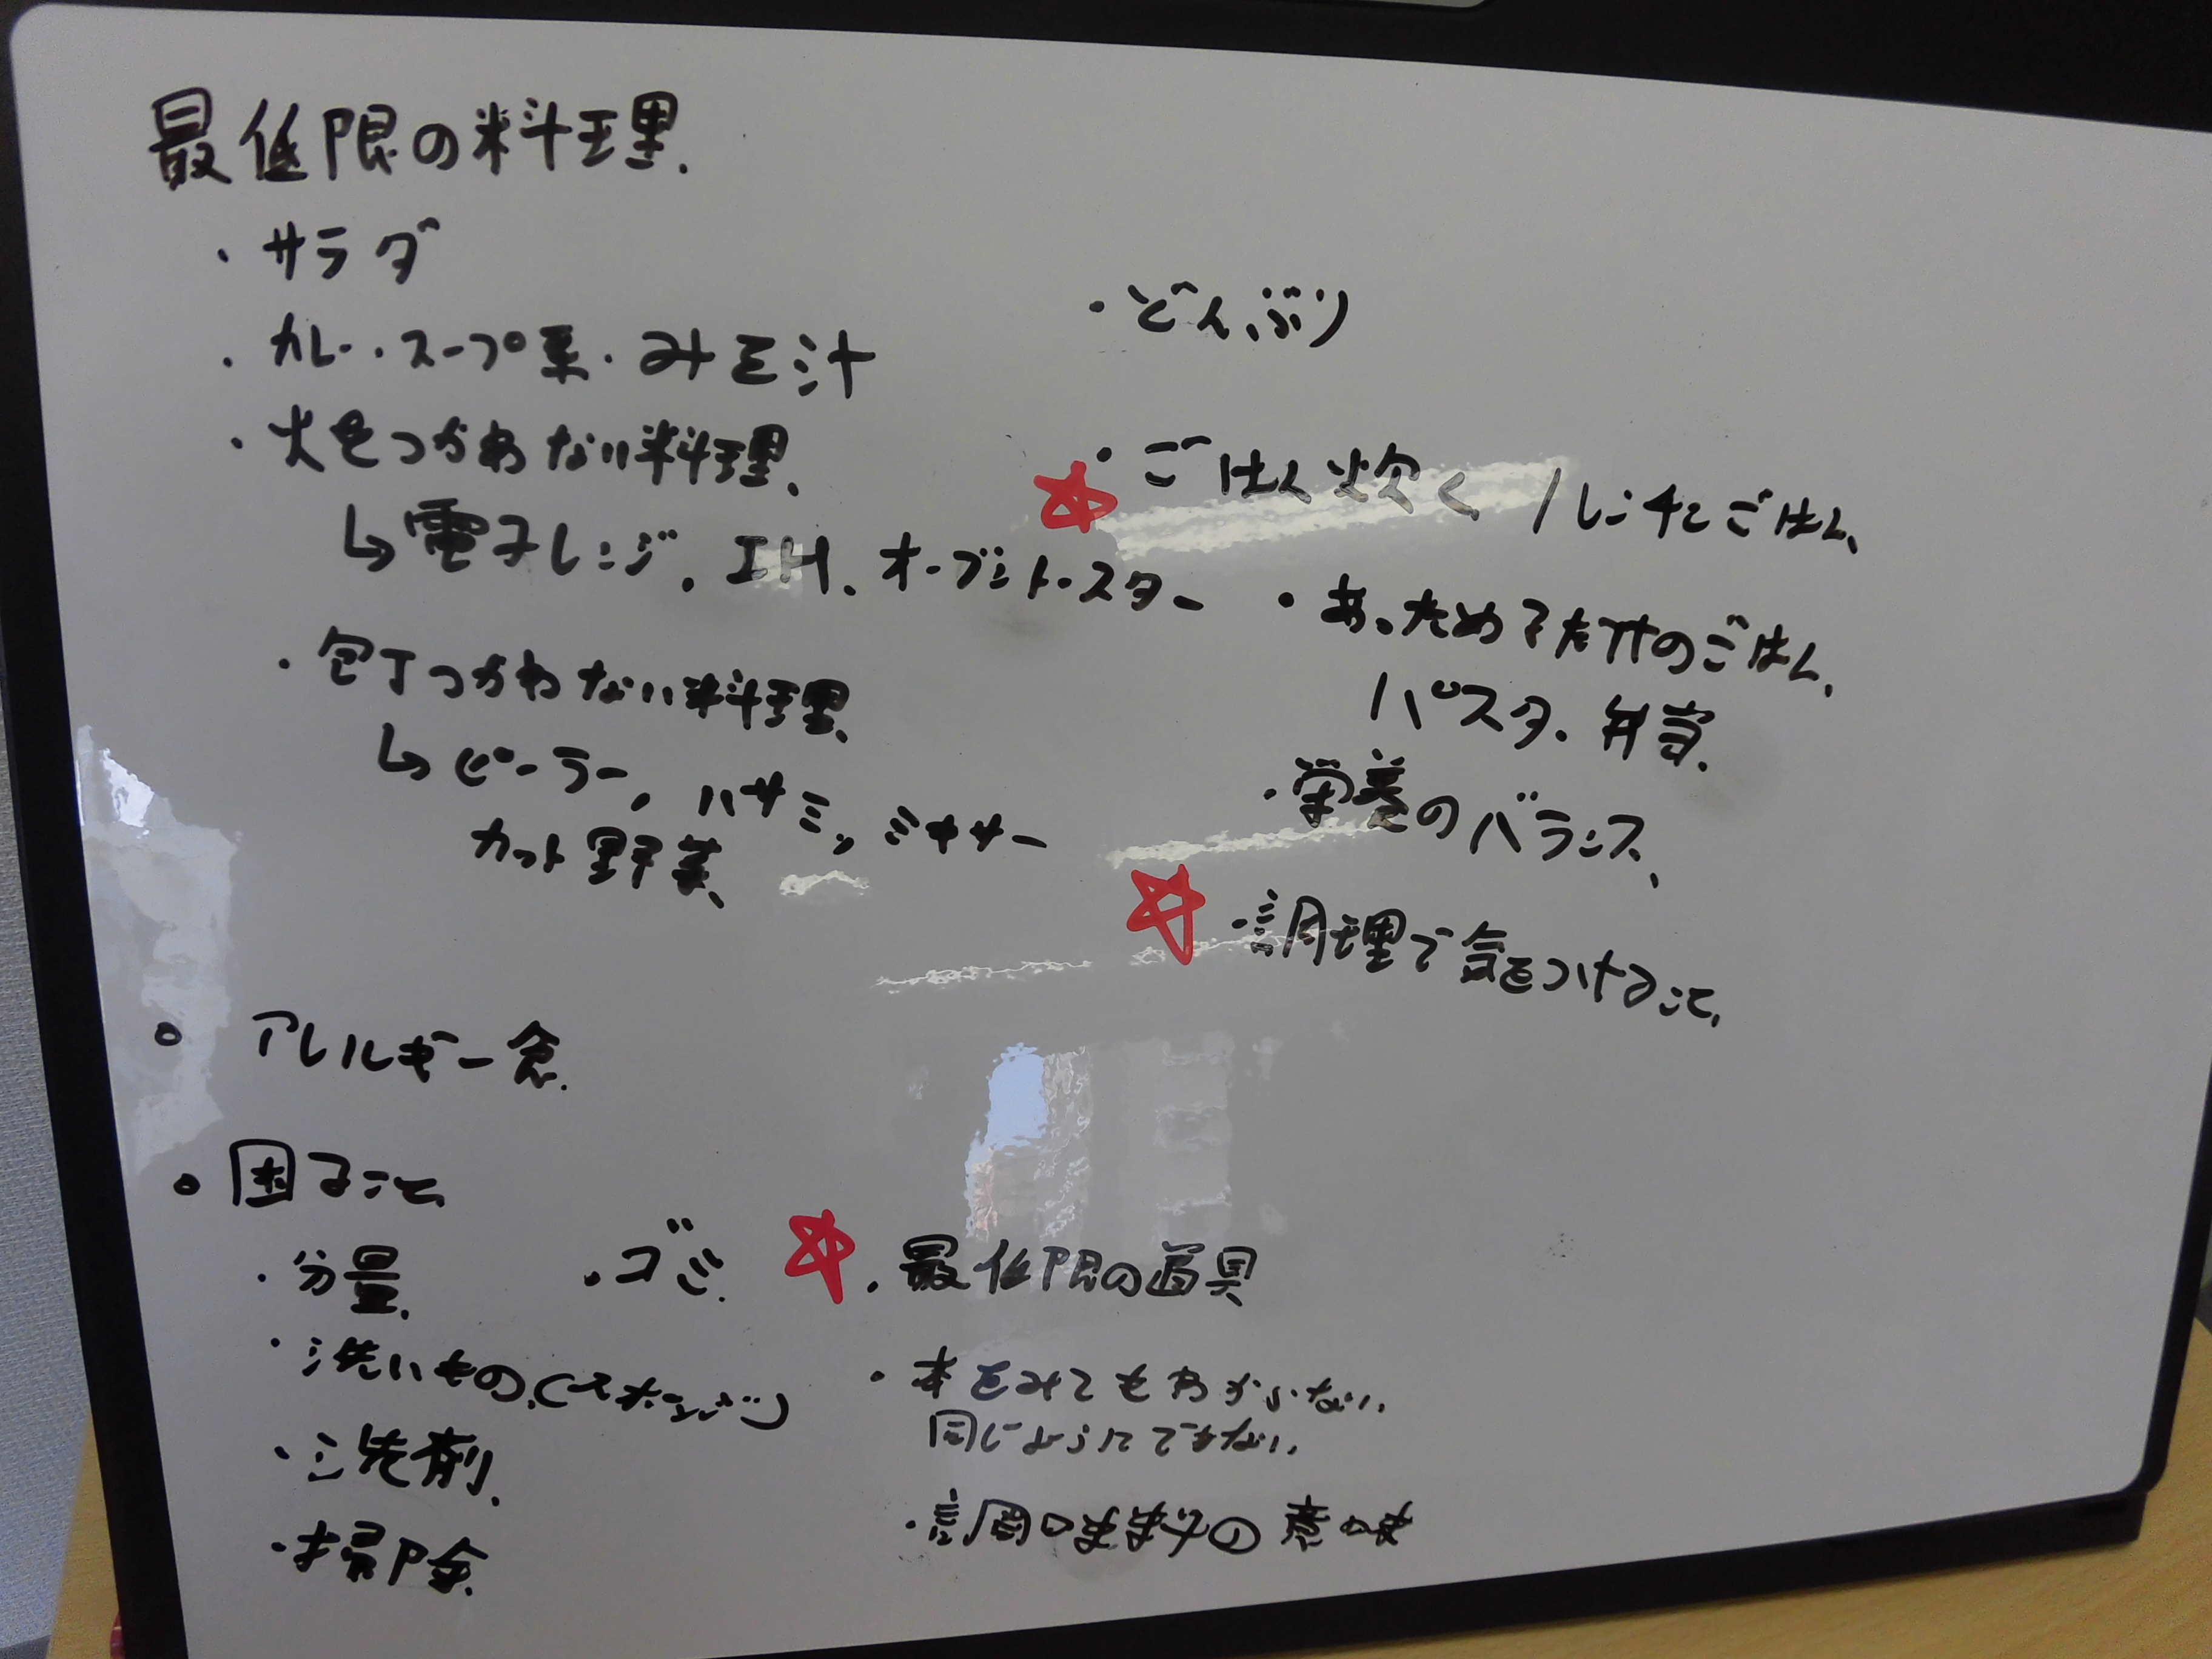 最低限の料理.
・サラダ
・カレー・スープ系・みそ汁
・火をつかわない料理.
↳電子レンジ. IH. オーブントースター
・包丁つかわない料理.
↳ピーラー, ハサミ, ミキサー
カット野菜.
・どんぶり
☆・ごはん炊く /レンチンごはん.
・あっためるだけのごはん.
パスタ. 弁当.
・栄養のバランス.
☆・調理で気をつけること.
○ アレルギー食.
○ 困ること
・分量.
・洗いもの.(スポンジ)
・洗剤.
・掃除.
・ゴミ.
☆・最低限の道具
・本をみてもわからない.
同じようにできない.
・調味料の意味